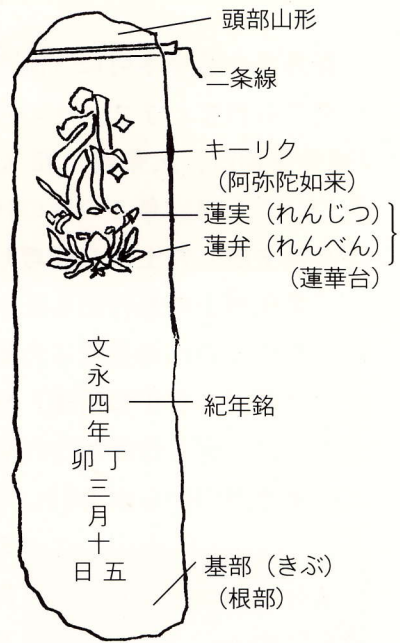 頭部山形
二条線
キーリク
(阿弥陀如来)
蓮実(れんじつ)
蓮弁(れんべん)
(蓮華台)
文永四年丁卯三月十五日
紀年銘
基部(きぶ)
(根部)